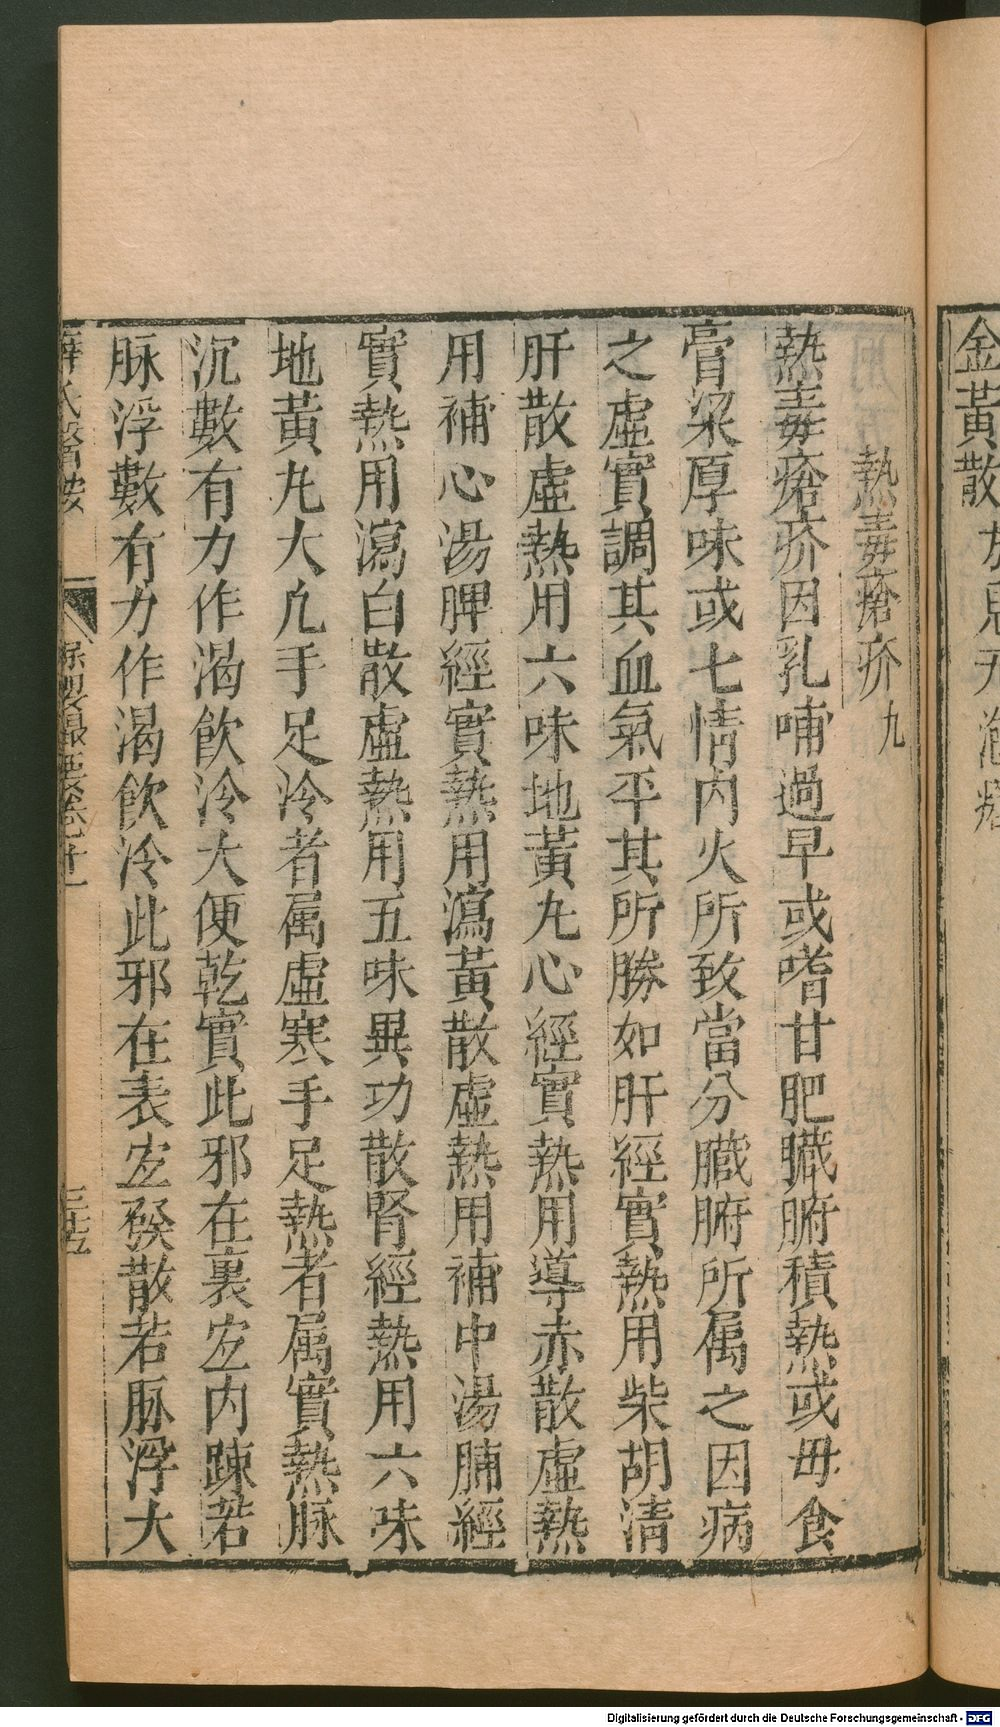 金黃散方見
熱毒瘡疥九
熱毒瘡疥因乳哺過早或嗜甘肥臓腑積熱或毋食
膏梁厚味或七情内火所致當分臓腑所属之因病
之虛實調其血氣平其所勝如肝經實熱用柴胡清
肝散虛熱用六味地黃九心經實熱用導赤散虛熱
用補心湯脾經實熱用瀉黃散虛熱用補中湯腩經
實熱用瀉白散虛熱用五味異功散腎經熱用六味
地黃九大凢手足冷者属虛寒手足熱者属實熱脉
沉數有力作渴飲冷大便乾實此邪在裏宐内踈若
脉浮數有力作渴飲冷此邪在表宐發散若脉浮大
薛氏醫按
保嬰撮要卷十一
三十五
Digitalisierung gefördert durch die Deutsche Forschungsgemeinschaft - DFG